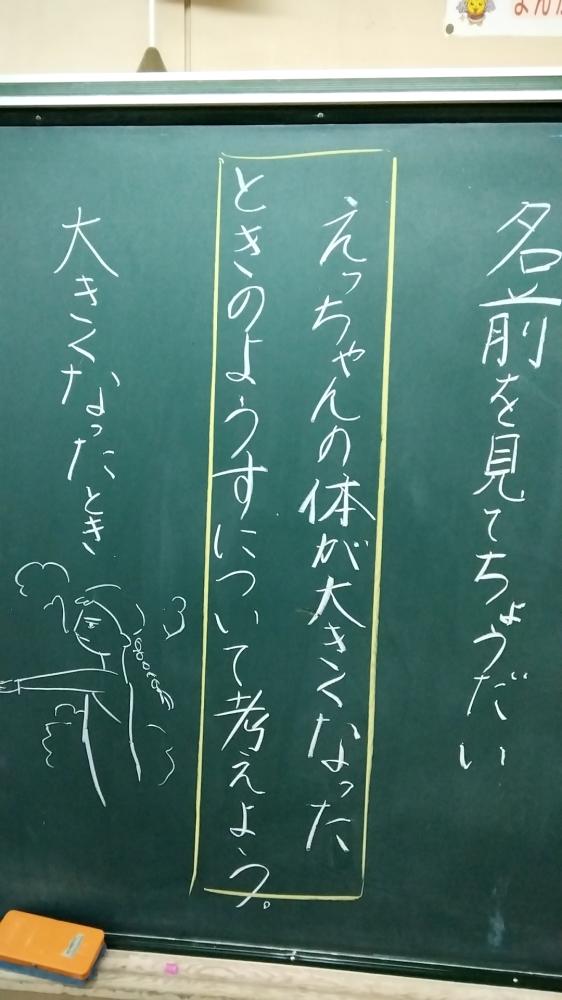 名前を見てちょうだい
えっちゃんの体が大きくなった
ときのようすについて考えよう。
大きくなったとき